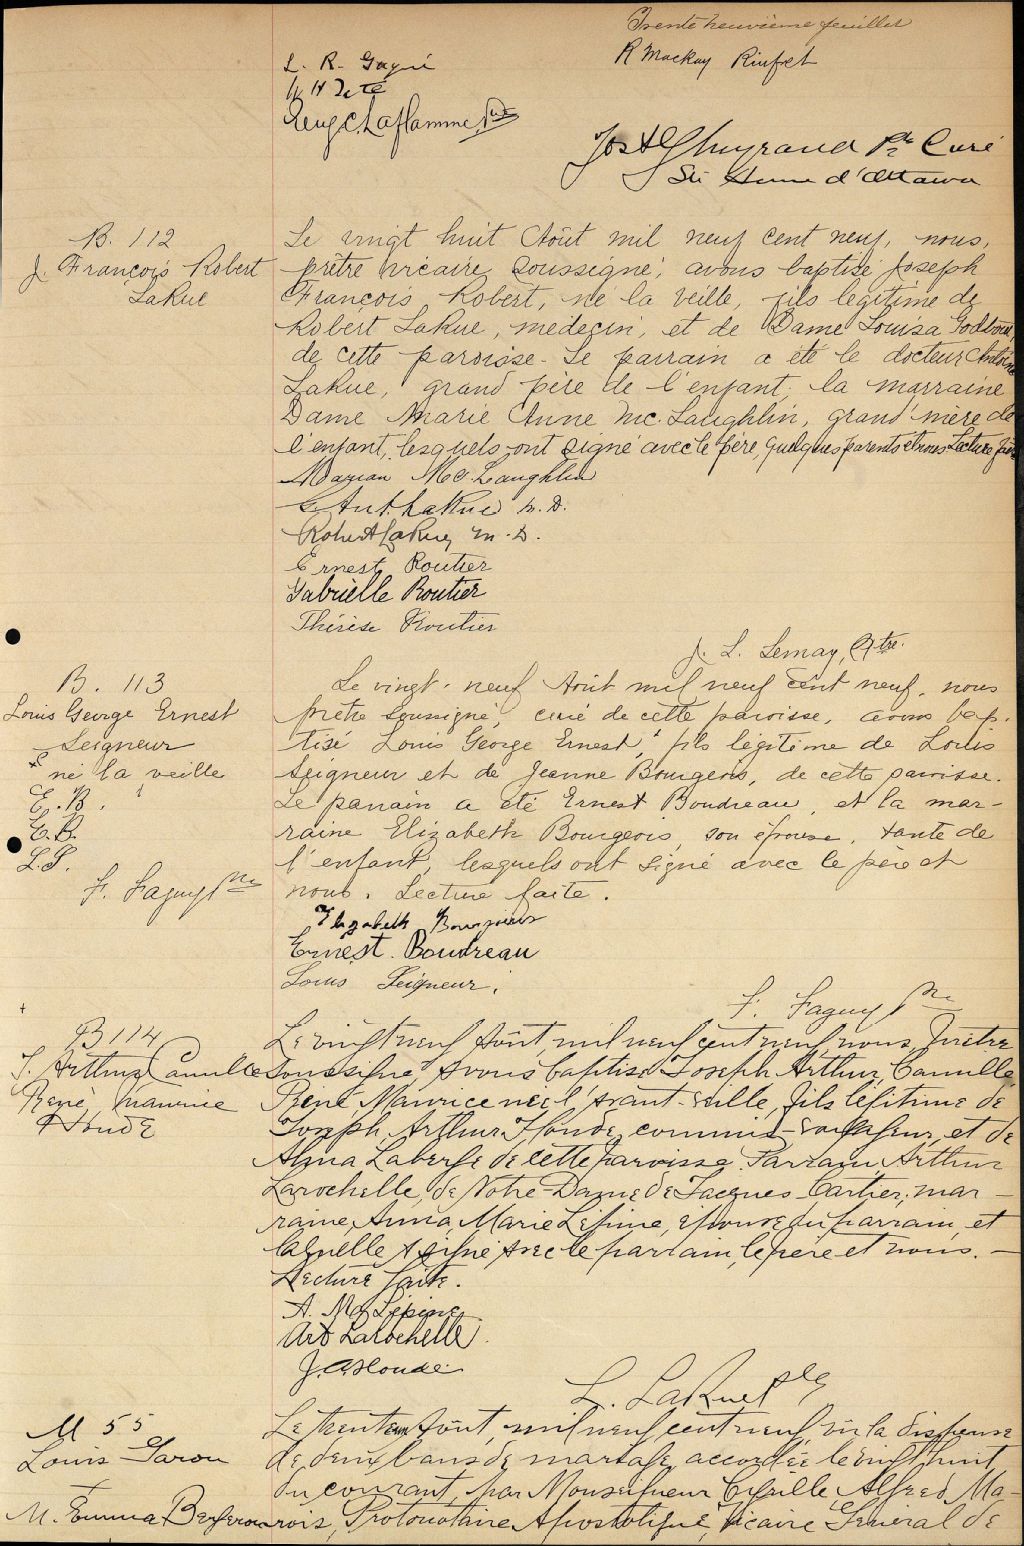 Trente neuvième feuillet
L. R. Gagné
R Mackay Rinfret
Eug. C. Laflamme, Ptre
Jos Ptre Curé
Ste Anne d'Ottawa
B. 112
J. François Robert
LaRue
Le vingt huit Août mil neuf cent neuf, nous,
prêtre vicaire soussigné, avons baptisé Joseph
François Robert, né la veille, fils légitime de
Robert LaRue, médecin, et de Dame Louisa Godbout,
de cette paroisse. Le parrain a été le docteur Antoine
LaRue, grand père de l'enfant, la marraine
Dame Marie Anne Mc. Laughlin, grand'mère de
l'enfant, lesquels ont signé avec le père, quelques parents et nous. Lecture faite
Marian Mc. Laughlin
G. Ant. LaRue M. D.
Robert LaRue, M. D.
Ernest Routier
Gabrielle Routier
Thérèse Routier
J. L. Lemay, Ptre.
B. 113
Louis George Ernest
Seigneur
+ né la veille
E. B.
E. B.
L. S.
F. Faguy Ptre
Le vingt-neuf Août mil neuf cent neuf, nous
prêtre soussigné, curé de cette paroisse, avons bap-
tisé Louis George Ernest, + fils légitime de Louis
Seigneur et de Jeanne Bourgeois, de cette paroisse.
Le parrain a été Ernest Boudreau, et la mar-
raine Elizabeth Bourgeois, son épouse, tante de
l'enfant, lesquels ont signé avec le père et
nous. Lecture faite.
Elizabeth Bourgeois
Ernest. Boudreau
Louis Seigneur.
F. Faguy Ptre
B 114
J. Arthur Camille
René, Maurice
Houde
Le vingt neuf Août, mil neuf cent neuf, nous, Prêtre
soussigné, avons baptisé Joseph, Arthur, Camille
René, Maurice né l'avant-veille, fils légitime de
Joseph, Arthur Houde, commis-voyageur, et de
Alma Laberge de cette paroisse. Parrain, Arthur
Larochelle, de Notre-Dame de Jacques-Cartier; mar-
raine, Anna, Marie Lépine, épouse du parrain, et
laquelle a signé avec le parrain, le père et nous. —
Lecture faite.
A. Mie Lépine
Art Larochelle
J. A. Houde
L. LaRue Ptre
M 55
Louis Garou
+
M. Emma Bergeron
Le trente Août, mil neuf cent neuf, vu la dispense
de deux bans de mariage accordée le vingt huit
du courant, par Monseigneur Cyrille Alfred Ma-
rois, Protonotaire Apostolique, Vicaire Général de